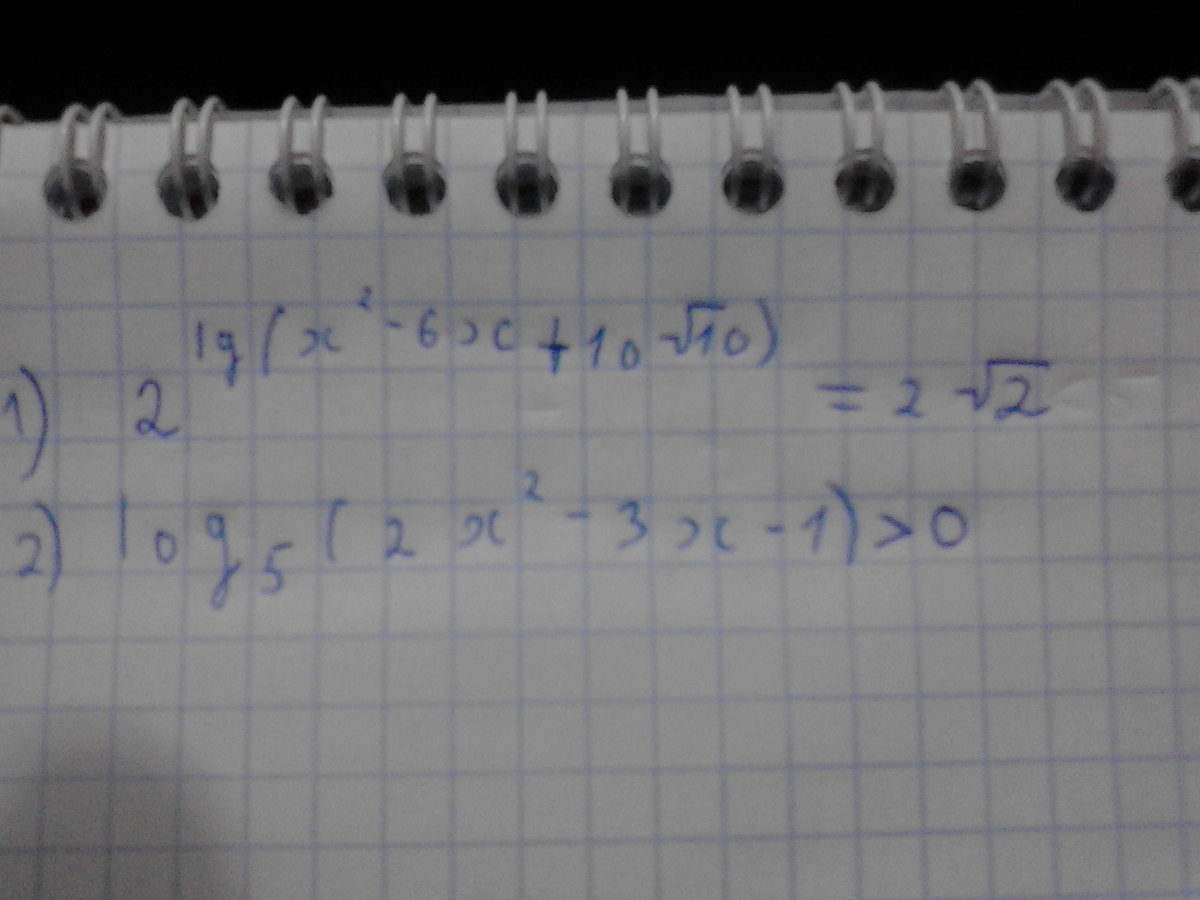 1) 2^lg(x²-6x+10√10) = 2√2
2) log₅(2x²-3x-1)>0